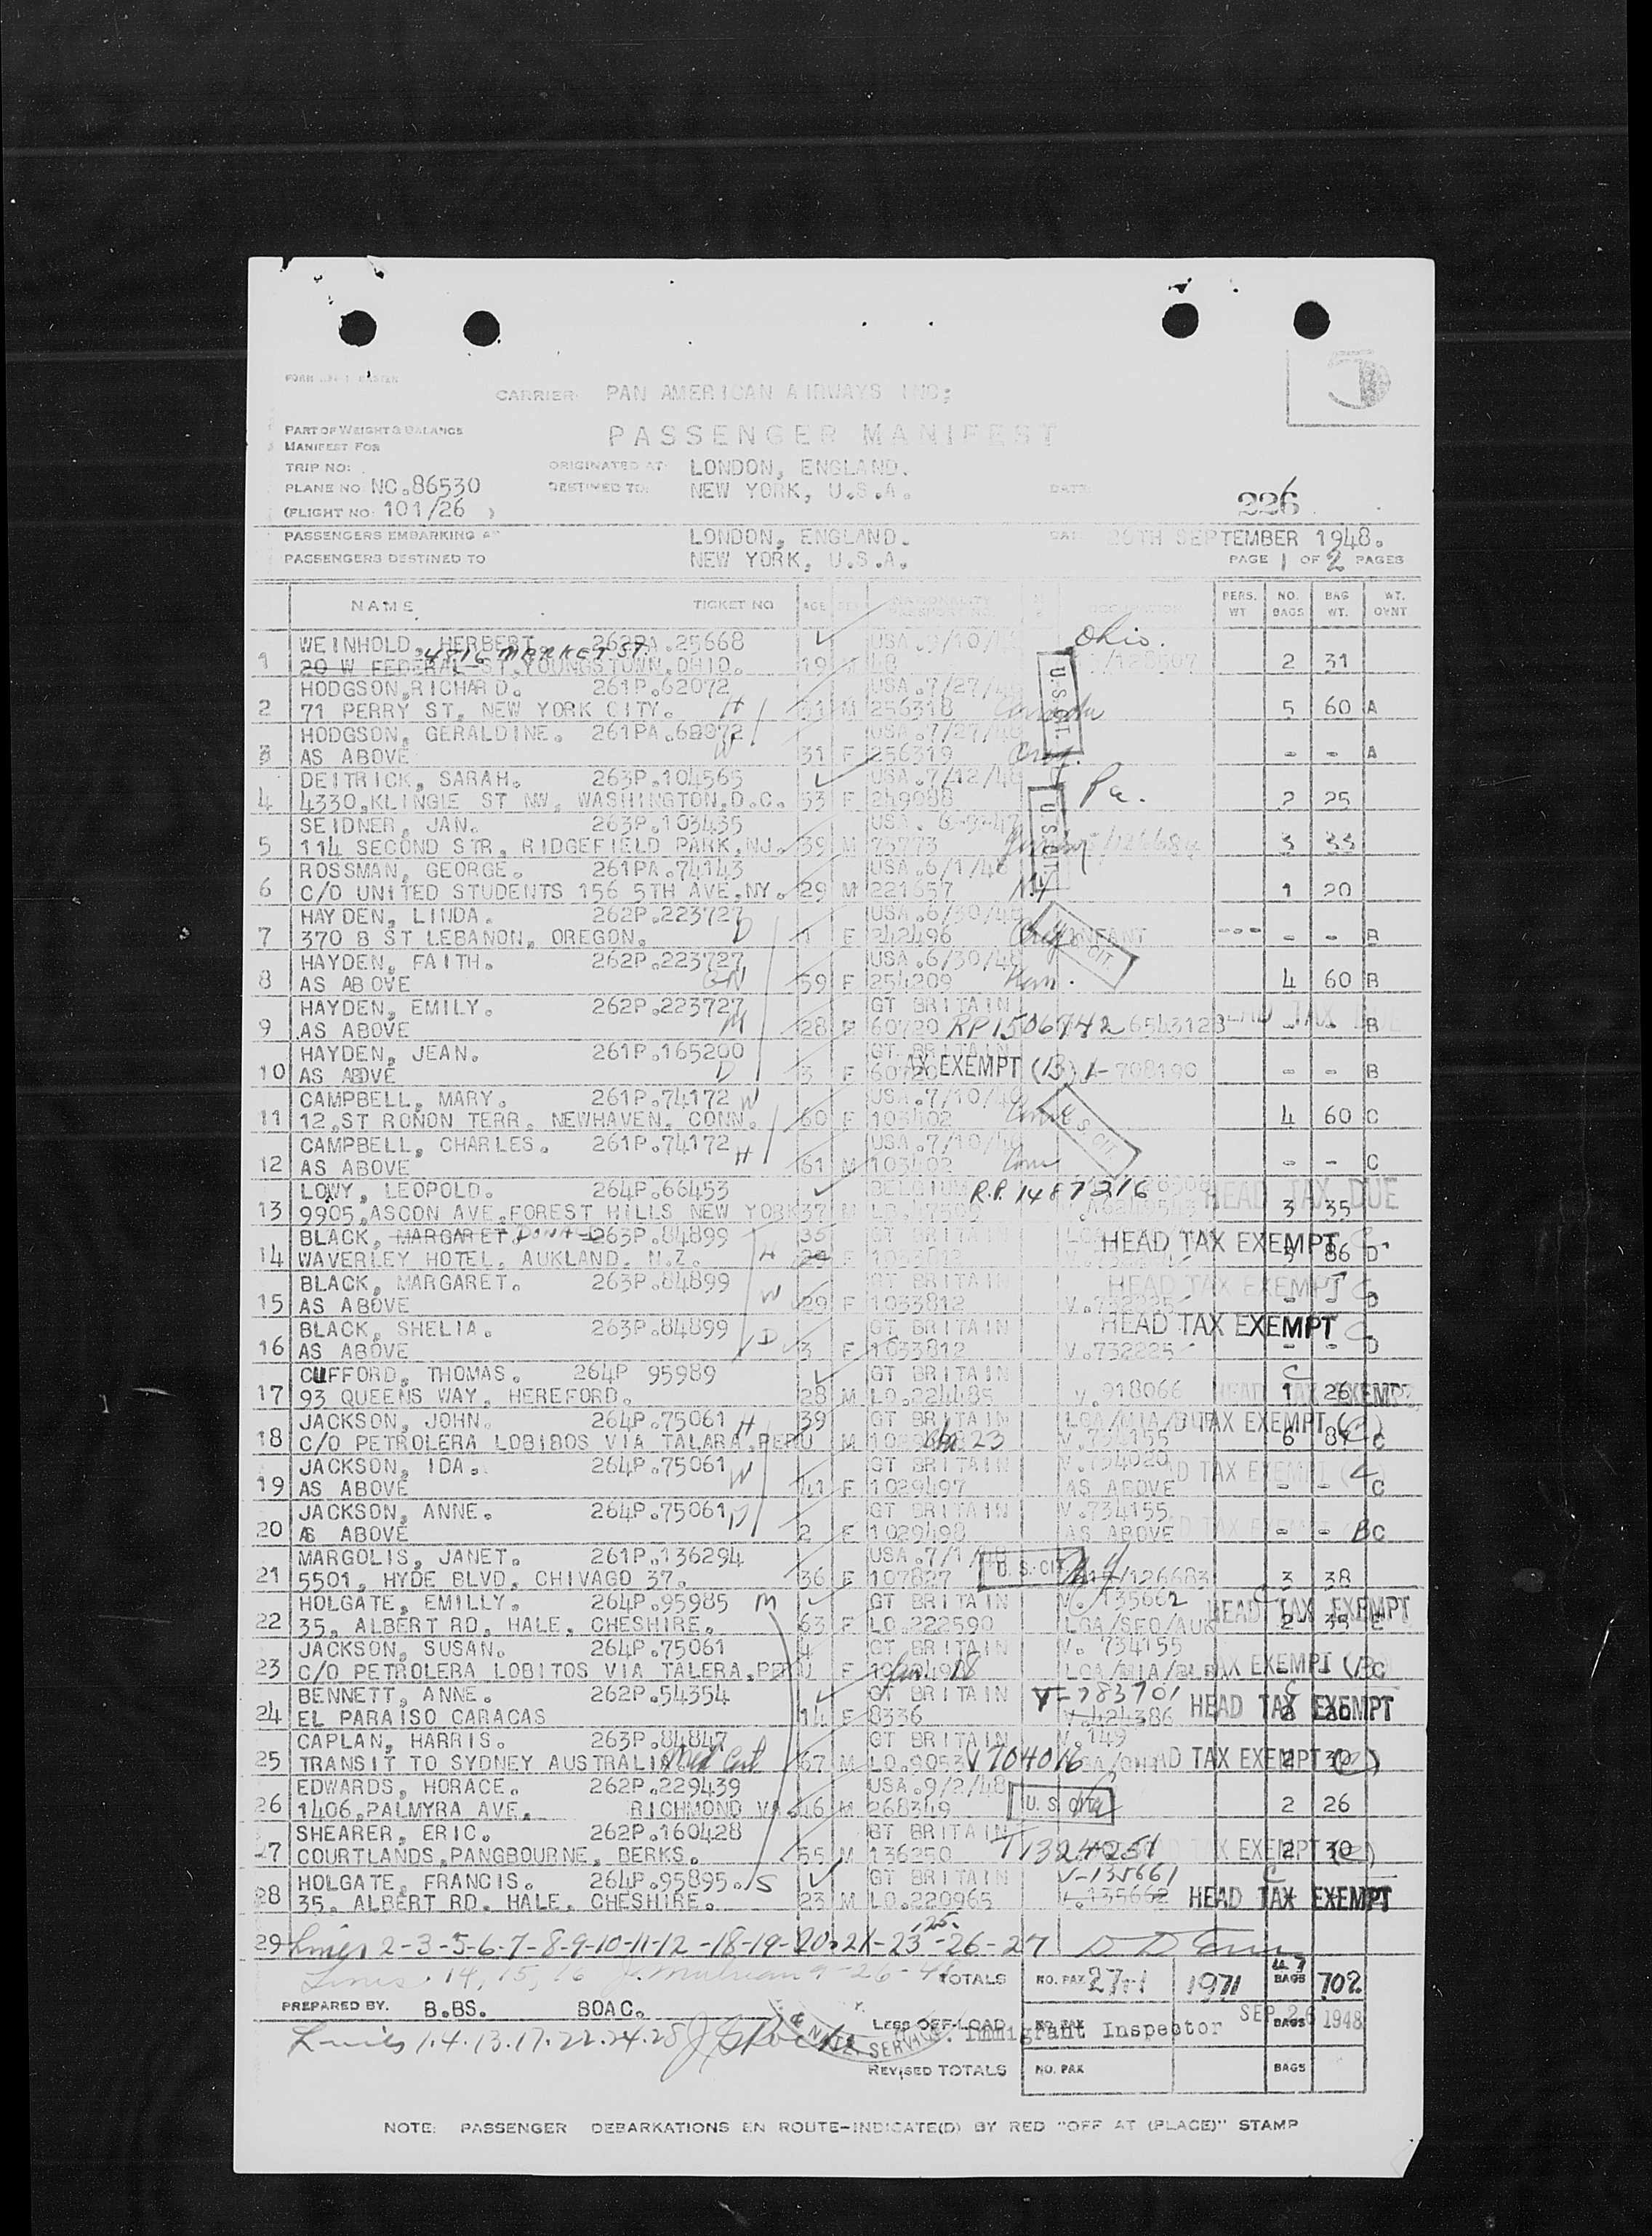 CARRIER PAN AMERICAN AIRWAYS INC;
PART OF WEIGHT & BALANCE
MANIFEST FOR
PASSENGER MANIFEST
TRIP NO:
ORIGINATED AT: LONDON, ENGLAND.
PLANE NO NC.86530 DESTINED TO: NEW YORK, U.S.A. DATE:
226
(FLIGHT NO: 101/26 )
PASSENGERS EMBARKING AT LONDON, ENGLAND. DATE 26TH SEPTEMBER 1948.
PASSENGERS DESTINED TO NEW YORK, U.S.A. PAGE 1 OF 2 PAGES
NAME TICKET NO AGE SEX NATIONALITY PERS. WT NO. BAGS BAG WT. WT. QYNT
WEINHOLD, HERBERT 262PA.25668 USA.9/10/ Ohio.
4816 MARKET ST.
1 20 W FEDERAL ST. YOUNGSTOWN.OHIO. 19 2 31
HODGSON,RICHARD. 261P.62072 USA.7/27/48
2 71 PERRY ST, NEW YORK CITY. H 31 M 256318 Canada 5 60 A
HODGSON, GERALDINE. 261PA.62072 USA.7/27/48
3 AS ABOVE W 31 F 256319 - - A
DEITRICK, SARAH. 263P.104565 USA.7/12/48 Pa.
4 4330.KLINGLE ST NW, WASHINGTON.D.C. 53 F 249088 2 25
SEIDNER, JAN. 263P.103435 USA. 6-9-47
5 114 SECOND STR, RIDGEFIELD PARK.NJ. 39 M 75773 3 33
ROSSMAN, GEORGE. 261PA.74143 USA.6/1/48
6 C/O UNITED STUDENTS 156 5TH AVE.NY. 29 M 221657 NY 1 20
HAYDEN, LINDA. 262P.223727 USA.6/30/48
7 370 B ST LEBANON, OREGON. D 1 F 242496 INFANT --- - - B
HAYDEN, FAITH. 262P.223727 USA.6/30/48
8 AS ABOVE 59 F 254209 4 60 B
HAYDEN, EMILY. 262P.223727 GT BRITAIN
9 AS ABOVE M 28 F 60720 RP1506742 6543128 - - B
HAYDEN, JEAN. 261P.165200 GT BRITAIN
10 AS ABOVE D 3 F 60720 TAX EXEMPT (B) V-708190 - - B
CAMPBELL, MARY. 261P.74172 W USA.7/10/48
11 12.ST RONON TERR, NEWHAVEN, CONN. 60 F 103402 4 60 C
CAMPBELL, CHARLES. 261P.74172 H USA.7/10/48
12 AS ABOVE 61 M 103402 Conn - - C
LOWY, LEOPOLD. 264P.66453 BELGIUM R.P. 1487216 HEAD TAX DUE
13 9905.ASCON AVE.FOREST HILLS NEW YORK 37 M 3 35
BLACK, MARGARET DONALD 263P.84899 35 GT BRITAIN HEAD TAX EXEMPT
14 WAVERLEY HOTEL, AUKLAND, N.Z. H 29 F 1033812 86 D
BLACK, MARGARET. 263P.84899 GT BRITAIN HEAD TAX EXEMPT
15 AS ABOVE W 29 F 1033812 V.732225 - - D
BLACK, SHELIA. 263P.84899 GT BRITAIN HEAD TAX EXEMPT
16 AS ABOVE D 3 F 1033812 V.732225 - - D
CLIFFORD, THOMAS. 264P 95989 GT BRITAIN
17 93 QUEENS WAY, HEREFORD. 28 M LO.224485 V.918066 HEAD TAX EXEMPT 1 26
JACKSON, JOHN. 264P.75061 H 39 GT BRITAIN LGA/MIA/ TAX EXEMPT (C)
18 C/O PETROLERA LOBIBOS VIA TALARA.PERU M V.734155 6 87 C
JACKSON, IDA. 264P.75061 W GT BRITAIN V.734020 TAX EXEMPT
19 AS ABOVE 41 F 1029497 AS ABOVE - - C
JACKSON, ANNE. 264P.75061 D GT BRITAIN V.734155
20 AS ABOVE 2 F 1029498 AS ABOVE - - C
MARGOLIS, JANET. 261P.136294 USA.7/1/48 U.S.CIT
21 5501, HYDE BLVD, CHIVAGO 37. 36 F 107827 /126683 3 38
HOLGATE, EMILLY. 264P.95985 M GT BRITAIN V.135662 HEAD TAX EXEMPT
22 35, ALBERT RD, HALE, CHESHIRE. 63 F LO.222590 LGA/SFO/AUK 2 35 E
JACKSON, SUSAN. 264P.75061 4 GT BRITAIN V. 734155
23 C/O PETROLERA LOBITOS VIA TALERA.PERU F LGA/MIA/ TAX EXEMPT (B) C
BENNETT, ANNE. 262P.54354 GT BRITAIN V-783701
24 EL PARAISO CARACAS 14 F 8336 V.424386 HEAD TAX EXEMPT
CAPLAN, HARRIS. 263P.84847 GT BRITAIN V.149
25 TRANSIT TO SYDNEY AUSTRALIA Med Cert 67 M LO.9053 V704016 HEAD TAX EXEMPT (C)
EDWARDS, HORACE. 262P.229439 USA.9/2/48
26 1406.PALMYRA AVE. RICHMOND VA. 16 M 268349 U.S.CIT Va 2 26
SHEARER, ERIC. 262P.160428 GT BRITAIN
27 COURTLANDS.PANGBOURNE, BERKS. 55 M 136250 V1324251 TAX EXEMPT (C) 2 30
HOLGATE, FRANCIS. 264P.95895. S GT BRITAIN V-135661
28 35. ALBERT RD. HALE, CHESHIRE. 23 M LO.220965 V.135662 HEAD TAX EXEMPT
29 Lines 2-3-5-6-7-8-9-10-11-12-18-19-20-21-23-25-26-27
Lines 14, 15, 16 9-26-48 TOTALS NO. PAX 27+1 1971 BAGS 47 702
PREPARED BY. B.BS. BOAC. LESS OFF-LOAD NO. PAX BAGS
Lines 1.4.13.17.22.24.28 Immigrant Inspector SEP 26 1948
REVISED TOTALS NO. PAX BAGS
NOTE: PASSENGER DEBARKATIONS EN ROUTE-INDICATE(D) BY RED "OFF AT (PLACE)" STAMP